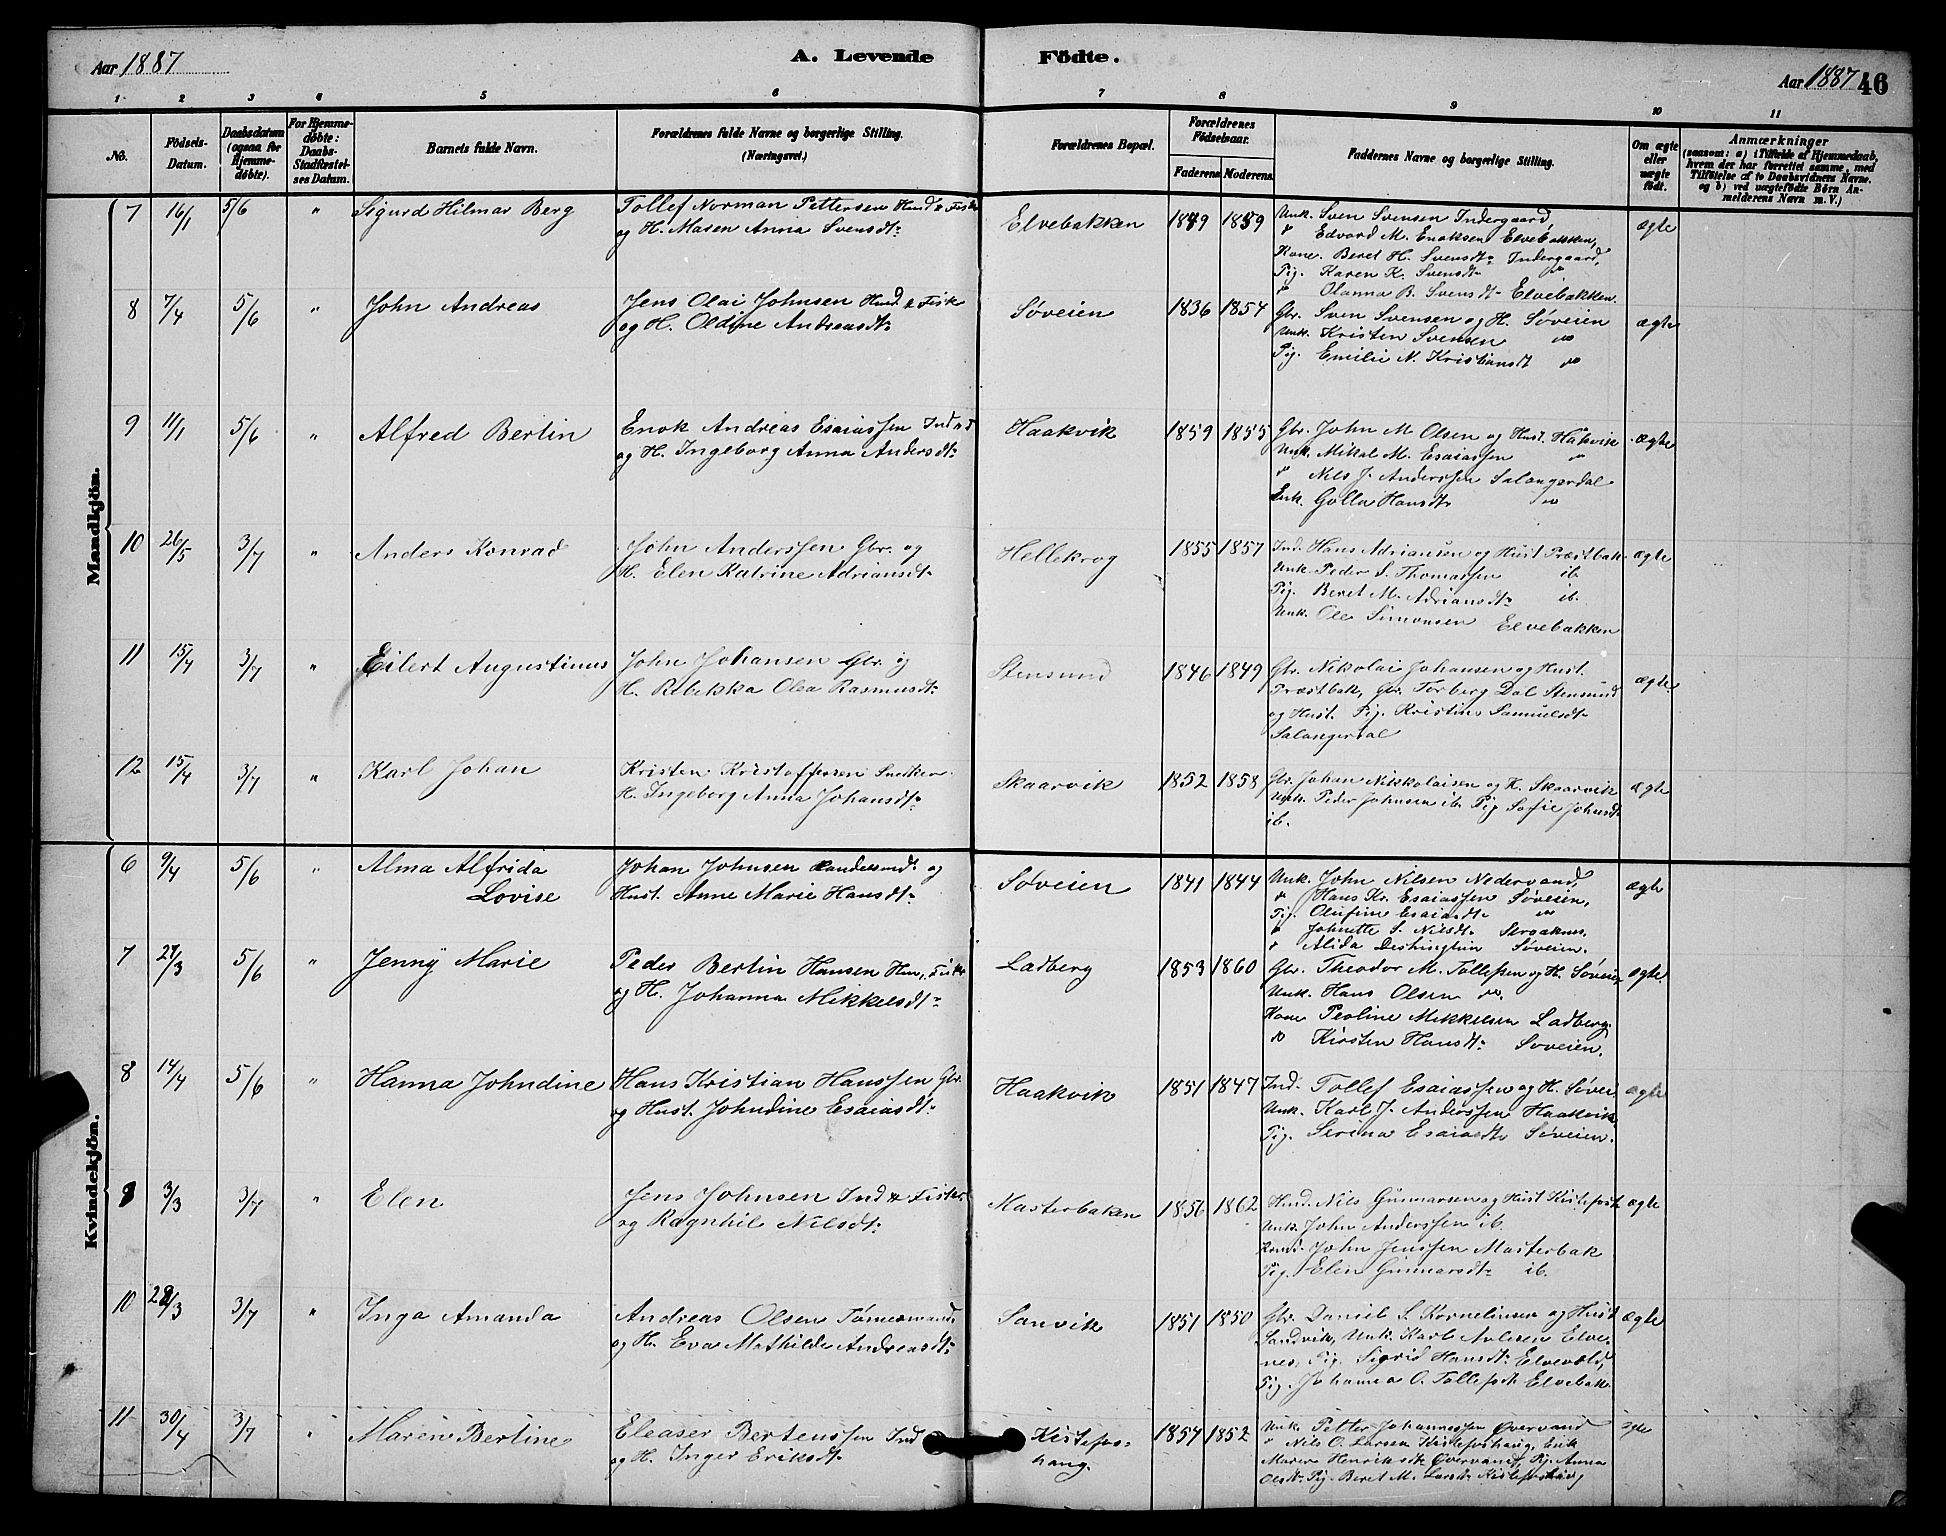 Aar 1887
A. Levende Födte.
Aar 1887 46
1 2 3 4 5 6 7 8 9 10 11
No.
Födsels-Datum.
Daabsdatum (ogsaa for Hjemmedöbte).
For Hjemmedöbte: Daabs-Stadfæstelses Datum.
Barnets fulde Navn.
Forældrenes fulde Navne og borgerlige Stilling. (Næringsvei.)
Forældrenes Bopæl.
Forældrenes Födselsaar.
Faderens Moderens
Faddernes Navne og borgerlige Stilling.
Om ægte eller uægte födt.
Anmærkninger
(saasom: a) i Tilfælde af Hjemmedaab, hvem der har forrettet samme, med Tilföielse af to Daabsvidners Navne, og b) ved uægtefödte Börn Anmelderens Navn m. V.)
Mandkjön.
7 16/1 5/6 " Sigurd Hilmar Berg
Tollef Norman Pettersen Husd & Fisk
og H. Maren Anna Svensdt:
Elvebakken 1849 1859
Unk. Sven Svensen Indergaard,
" Edvard M. Enoksen Elvebakken,
Kone. Beret H. Svensdt: Indergaard,
Pig. Karen K. Svensdt "
" Olanna B. Svensdt Elvebakken
ægte
8 7/4 5/6 " John Andreas
Jens Olai Johnsen Husd & Fisk
og H. Oldine Andreasdt:
Søveien 1836 1854
Gbr. Sven Svensen og H. Søveien
Unk. Kristen Svensen "
Pig. Emilie N. Kristiansdt "
ægte
9 11/1 5/6 " Alfred Bertin
Enok Andreas Esaiassen Ind & F
og H. Ingeborg Anna Andersdt:
Haakvik 1859 1855
Gbr. John M Olsen og Hust. Håkvik
Unk. Mikal M. Esaiassen "
" Nils J. Anderssen Salangerdal
Enk. Golla Hansdt "
ægte
10 26/5 3/7 " Anders Konrad
John Anderssen Gbr. og
H. Elen Katrine Adriansdt:
Hellekrog 1855 1857
Ind. Hans Adriansen og Hust Præstbak
Unk. Peder S. Thomassen ib.
Pig. Beret M. Adriansdt: ib.
Unk. Ole Simonsen Elvebakken
ægte
11 15/4 3/7 " Eilert Augustinus
John Johansen Gbr. og
H. Rebekka Olea Rasmusdt:
Stensund 1846 1849
Gbr. Nikolai Johansen og Hust.
Præstbak, Gbr. Torberg Dal Stensund
og Hust. Pig. Kristine Samuelsdt
Salangerdal
ægte
12 15/4 3/7 " Karl Johan
Kristen Kristoffersen Snedker
H. Ingeborg Anna Johansdt:
Skaarvik 1852 1858
Gbr. Johan Nikkolaisen og H. Skaarvik
Unk. Peder Johnsen ib. Pig Sofie Johnsd
ib.
ægte
Kvindekjön.
6 9/4 5/6 " Alma Alfrida
Lovise
Johan Johnsen Handelsmdt og
Hust. Anne Marie Hansdt:
Søveien 1841 1844
Unk. John Nilsen Nedervand,
" Hans Kr. Esaiassen Søveien,
Pig. Olufine Esaiasdt "
" Johnette S. Nilsdt
" Alida Søveien.
ægte
7 27/3 5/6 " Jenny Marie
Peder Bertin Hansen Fisk
og H. Johanna Mikkelsdt:
Ladberg 1853 1860
Gbr. Theodor M. Tollefsen og H. Søveien
Unk. Hans Olsen do.
Kone Peoline Mikkelsen Ladberg.
do Kirsten Hansdt: Søveien.
ægte
8 14/4 5/6 " Hanna Johndine
Hans Kristian Hanssen Gbr.
og Hust. Johndine Esaiasdt:
Haakvik 1851 1847
Ind. Tollef Esaiassen og H. Søvei
Unk. Karl J. Anderssen Haakvik
Pig. Serina Esaiasdt Søveien.
ægte
9 3/3 3/7 " Elen
Jens Johnsen Ind & Fisker
og Ragnhil Nilsdt:
Masterbaken 1856 1862
Husd. Nils Gunnarsen og Hust
Unk. John Anderssen ib.
John Jenssen Masterbak
Pig. Elen Gunnarsdt: ib.
ægte
10 28/3 3/7 " Inga Amanda
Andreas Olsen Tømmermand
og H. Eva Mathilde Andreasdt:
Sanvik 1851 1850
Gbr. Daniel S. Korneliussen og Hust
Sandvik, Unk. Karl Elve-
nes, Pig. Sigrid Hansdt: Elvevold,
Pig. Johanna O. Tollefsdt Elvebak
ægte
11 30/4 3/7 " Maren Bertine
Eleaser Bertenssen Ind
og H. Inger Eriksdt:
Kistefos-
haug. 1854 1852
Unk. Petter Johannessen Øvervand
" Nils O. Larsen Kistefoshaug, Enk
Maren Henriksdt Øvervand, Pig. Anna
Olsdt: Pig. Beret M. Larsdt Kistefoshaug
ægte